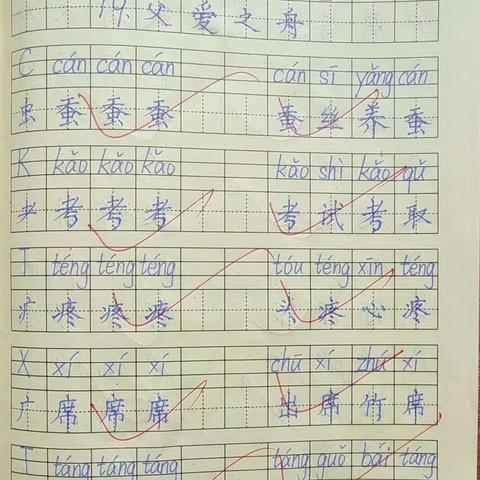 19.父爱之舟
C cán cán cán cán sī yǎng cán
虫 蚕 蚕 蚕 蚕 丝 养 蚕
K kǎo kǎo kǎo kǎo shì kǎo qǔ
耂 考 考 考 考 试 考 取
T téng téng téng tóu téng xīn téng
疒 疼 疼 疼 头 疼 心 疼
X xí xí xí chū xí zhú xí
广 席 席 席 出 席 竹 席
T táng táng táng táng guǒ bái táng